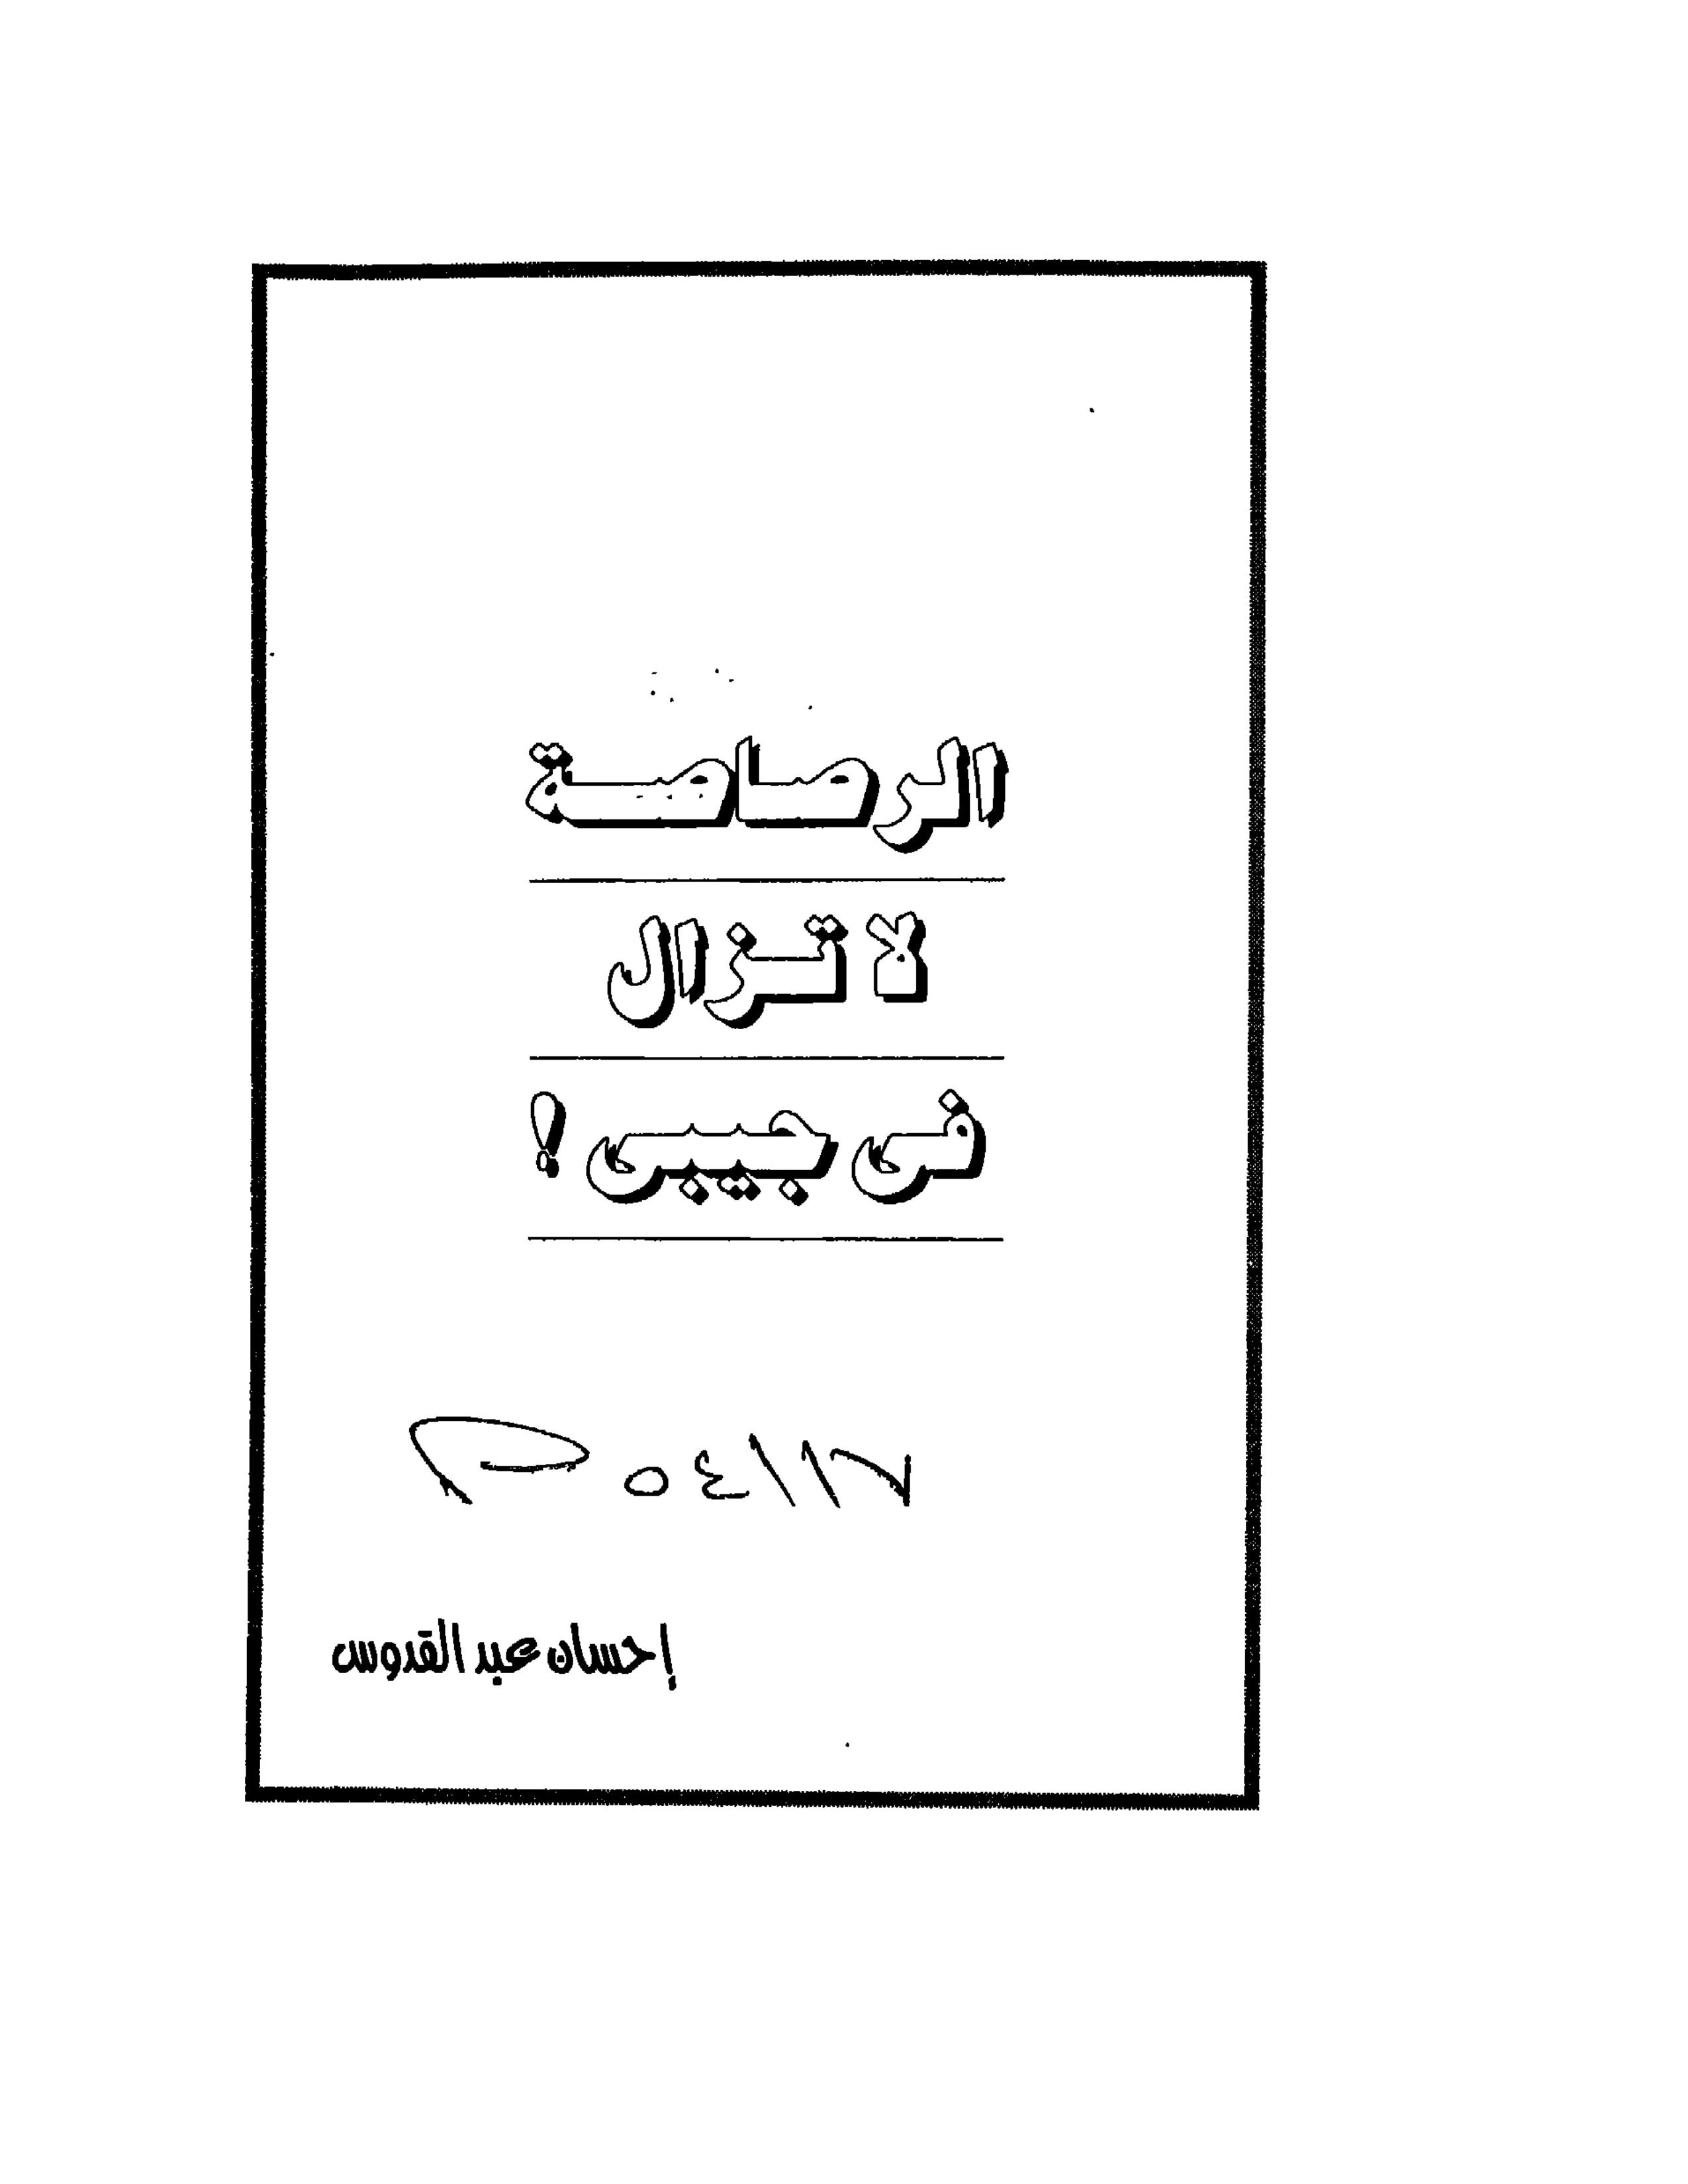 الرصاصة
لا تزال
فى جيبى !
إحسان عبد القدوس